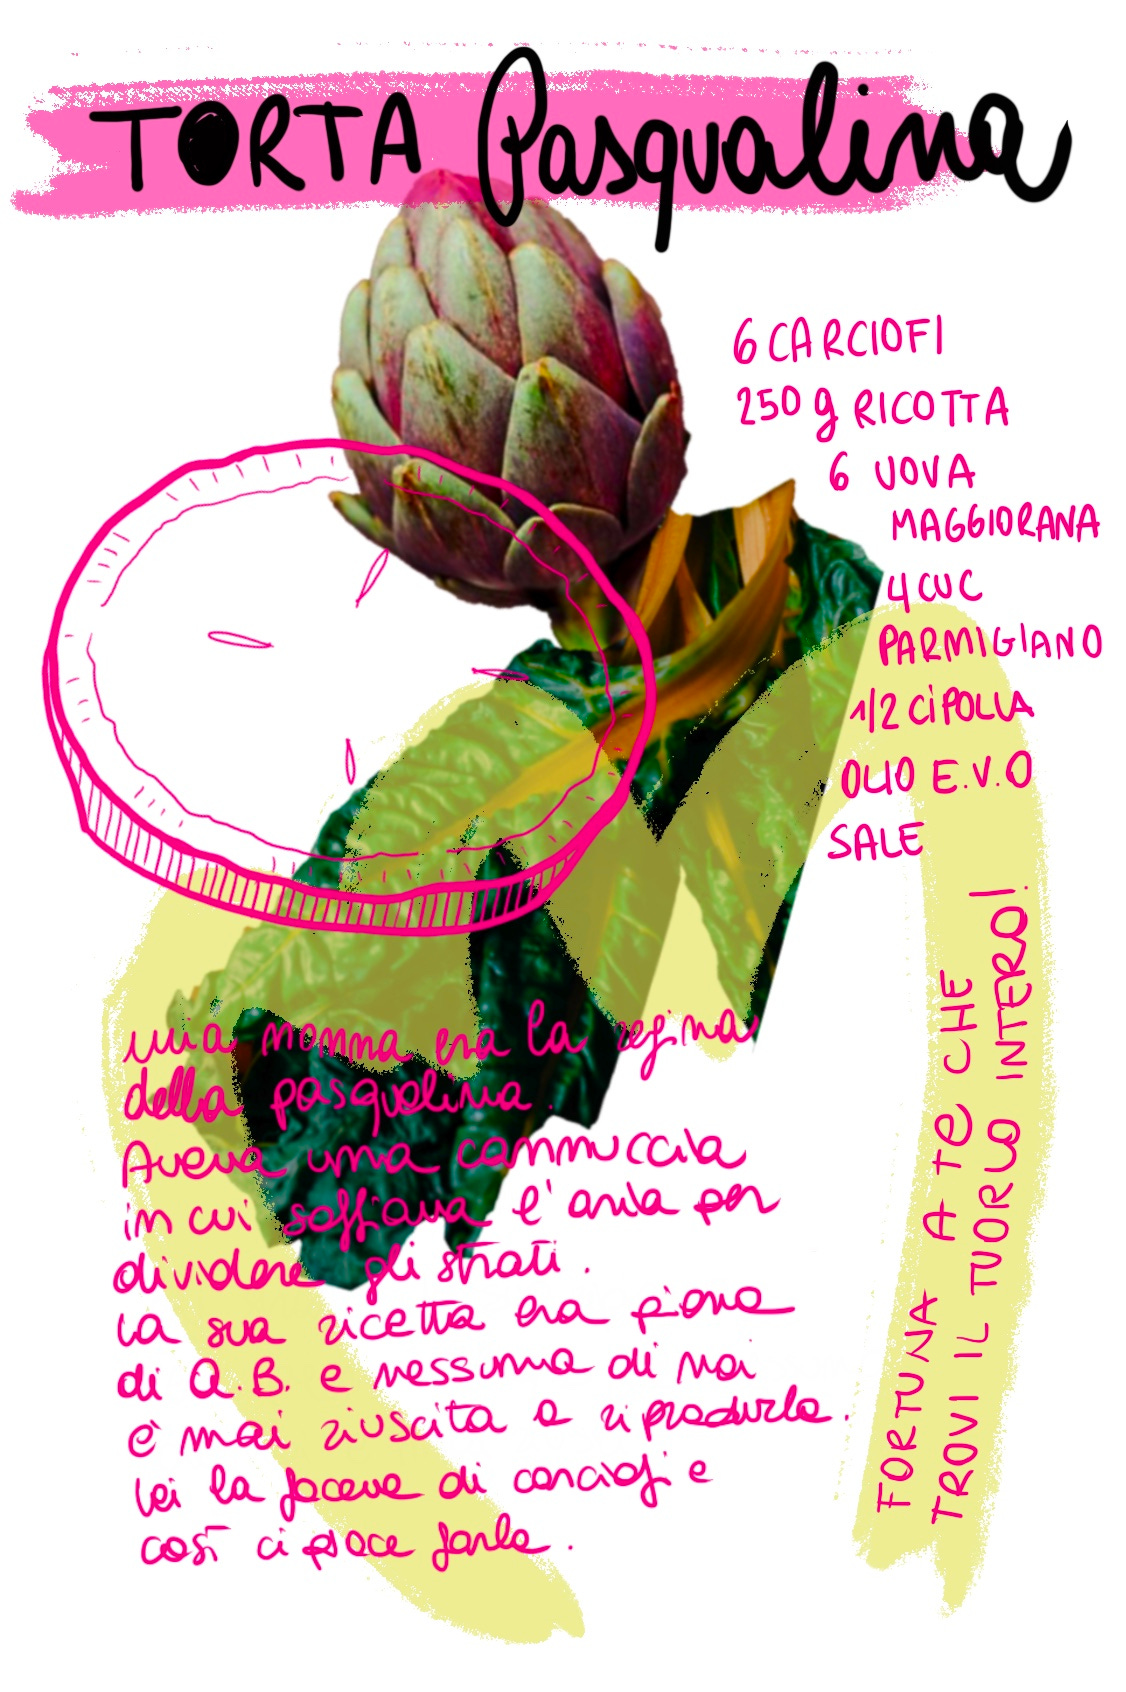 TORTA Pasqualina
6 CARCIOFI
250 g RICOTTA
6 UOVA
MAGGIORANA
4 CUC
PARMIGIANO
1/2 CIPOLLA
OLIO E.V.O
SALE
mia nonna era la regina
della pasqualina.
Aveva una cannuccia
in cui soffiava l'aria per
dividere gli strati.
La sua ricetta era piena
di Q.B. e nessuna di noi
è mai riuscita a riprodurla.
Lei la faceva di carciofi e
così ci piace farla.
FORTUNA A TE CHE
TROVI IL TUORLO INTERO!